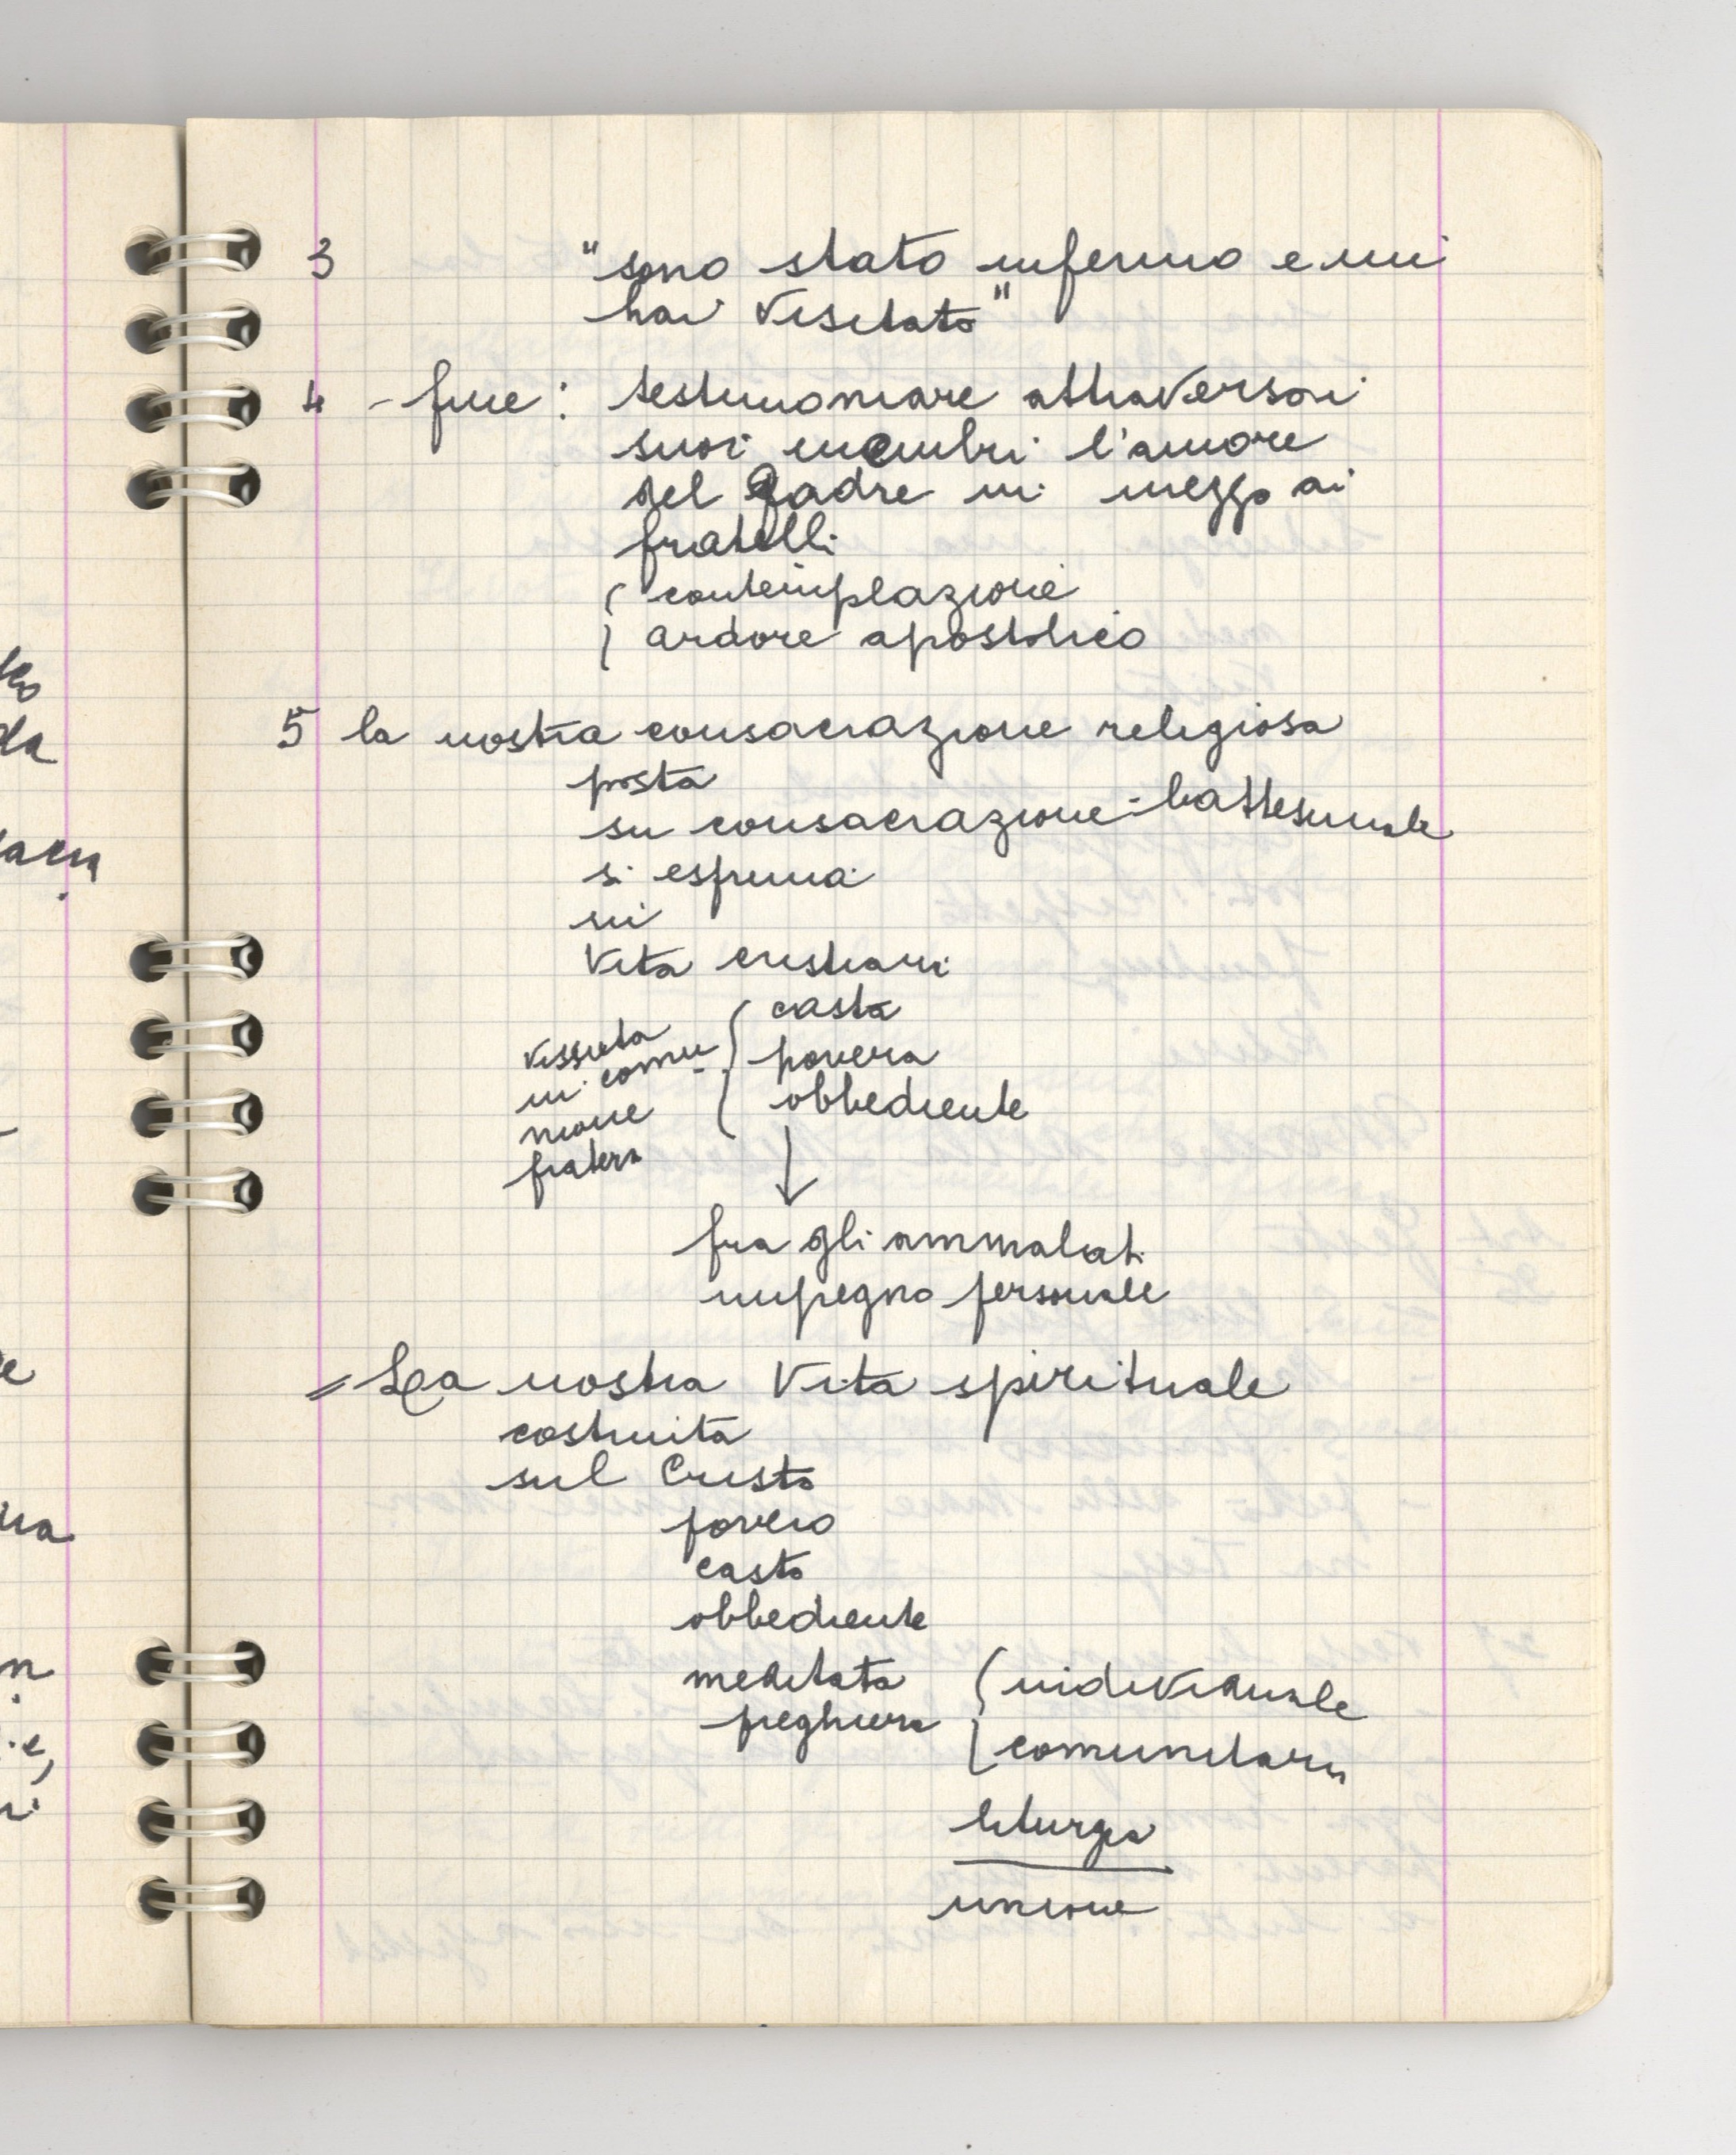 3 "sono stato infermo e mi
hai visitato"
4 - fine: testimoniare attraverso i
suoi membri l'amore
del Padre in mezzo ai
fratelli
{ contemplazione
ardore apostolico
5 la nostra consacrazione religiosa
posta
su consacrazione-battesimale
si esprima
in
Vita cristiani
vissuta
in comu-
nione
fratern
{ casta
povera
obbediente
↓
fra gli ammalati
impegno personale
= La nostra Vita spirituale
costruita
sul Cristo
povero
casto
obbediente
meditata
preghiera
{ individuale
comunitaria
liturgia
unione